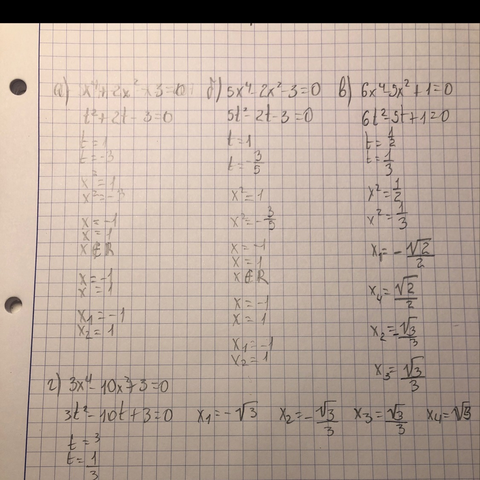 а) x⁴+2x²-3=0
t²+2t-3=0
t=1
t=-3
x²=1
x²=-3
x=-1
x=1
x∉R
x=-1
x=1
x₁=-1
x₂=1
б) 5x⁴-2x²-3=0
5t²-2t-3=0
t=1
t=-3/5
x²=1
x²=-3/5
x=-1
x=1
x∉R
x=-1
x=1
x₁=-1
x₂=1
в) 6x⁴-5x²+1=0
6t²-5t+1=0
t=1/2
t=1/3
x²=1/2
x²=1/3
x₁=-√2/2
x₄=√2/2
x₂=-√3/3
x₃=√3/3
г) 3x⁴-10x²+3=0
3t²-10t+3=0 x₁=-√3 x₂=-√3/3 x₃=√3/3 x₄=√3
t=3
t=1/3